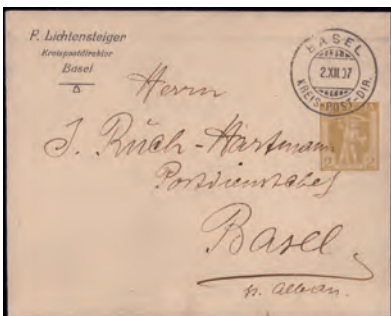 F. Lichtensteiger
Kreispostdirektor
Basel
BASEL
2.XII.07
KREIS-POST-DIR.
2 2
Herrn
J. Ruch-Hartmann
Postdienstchef
Basel
St. Alban.